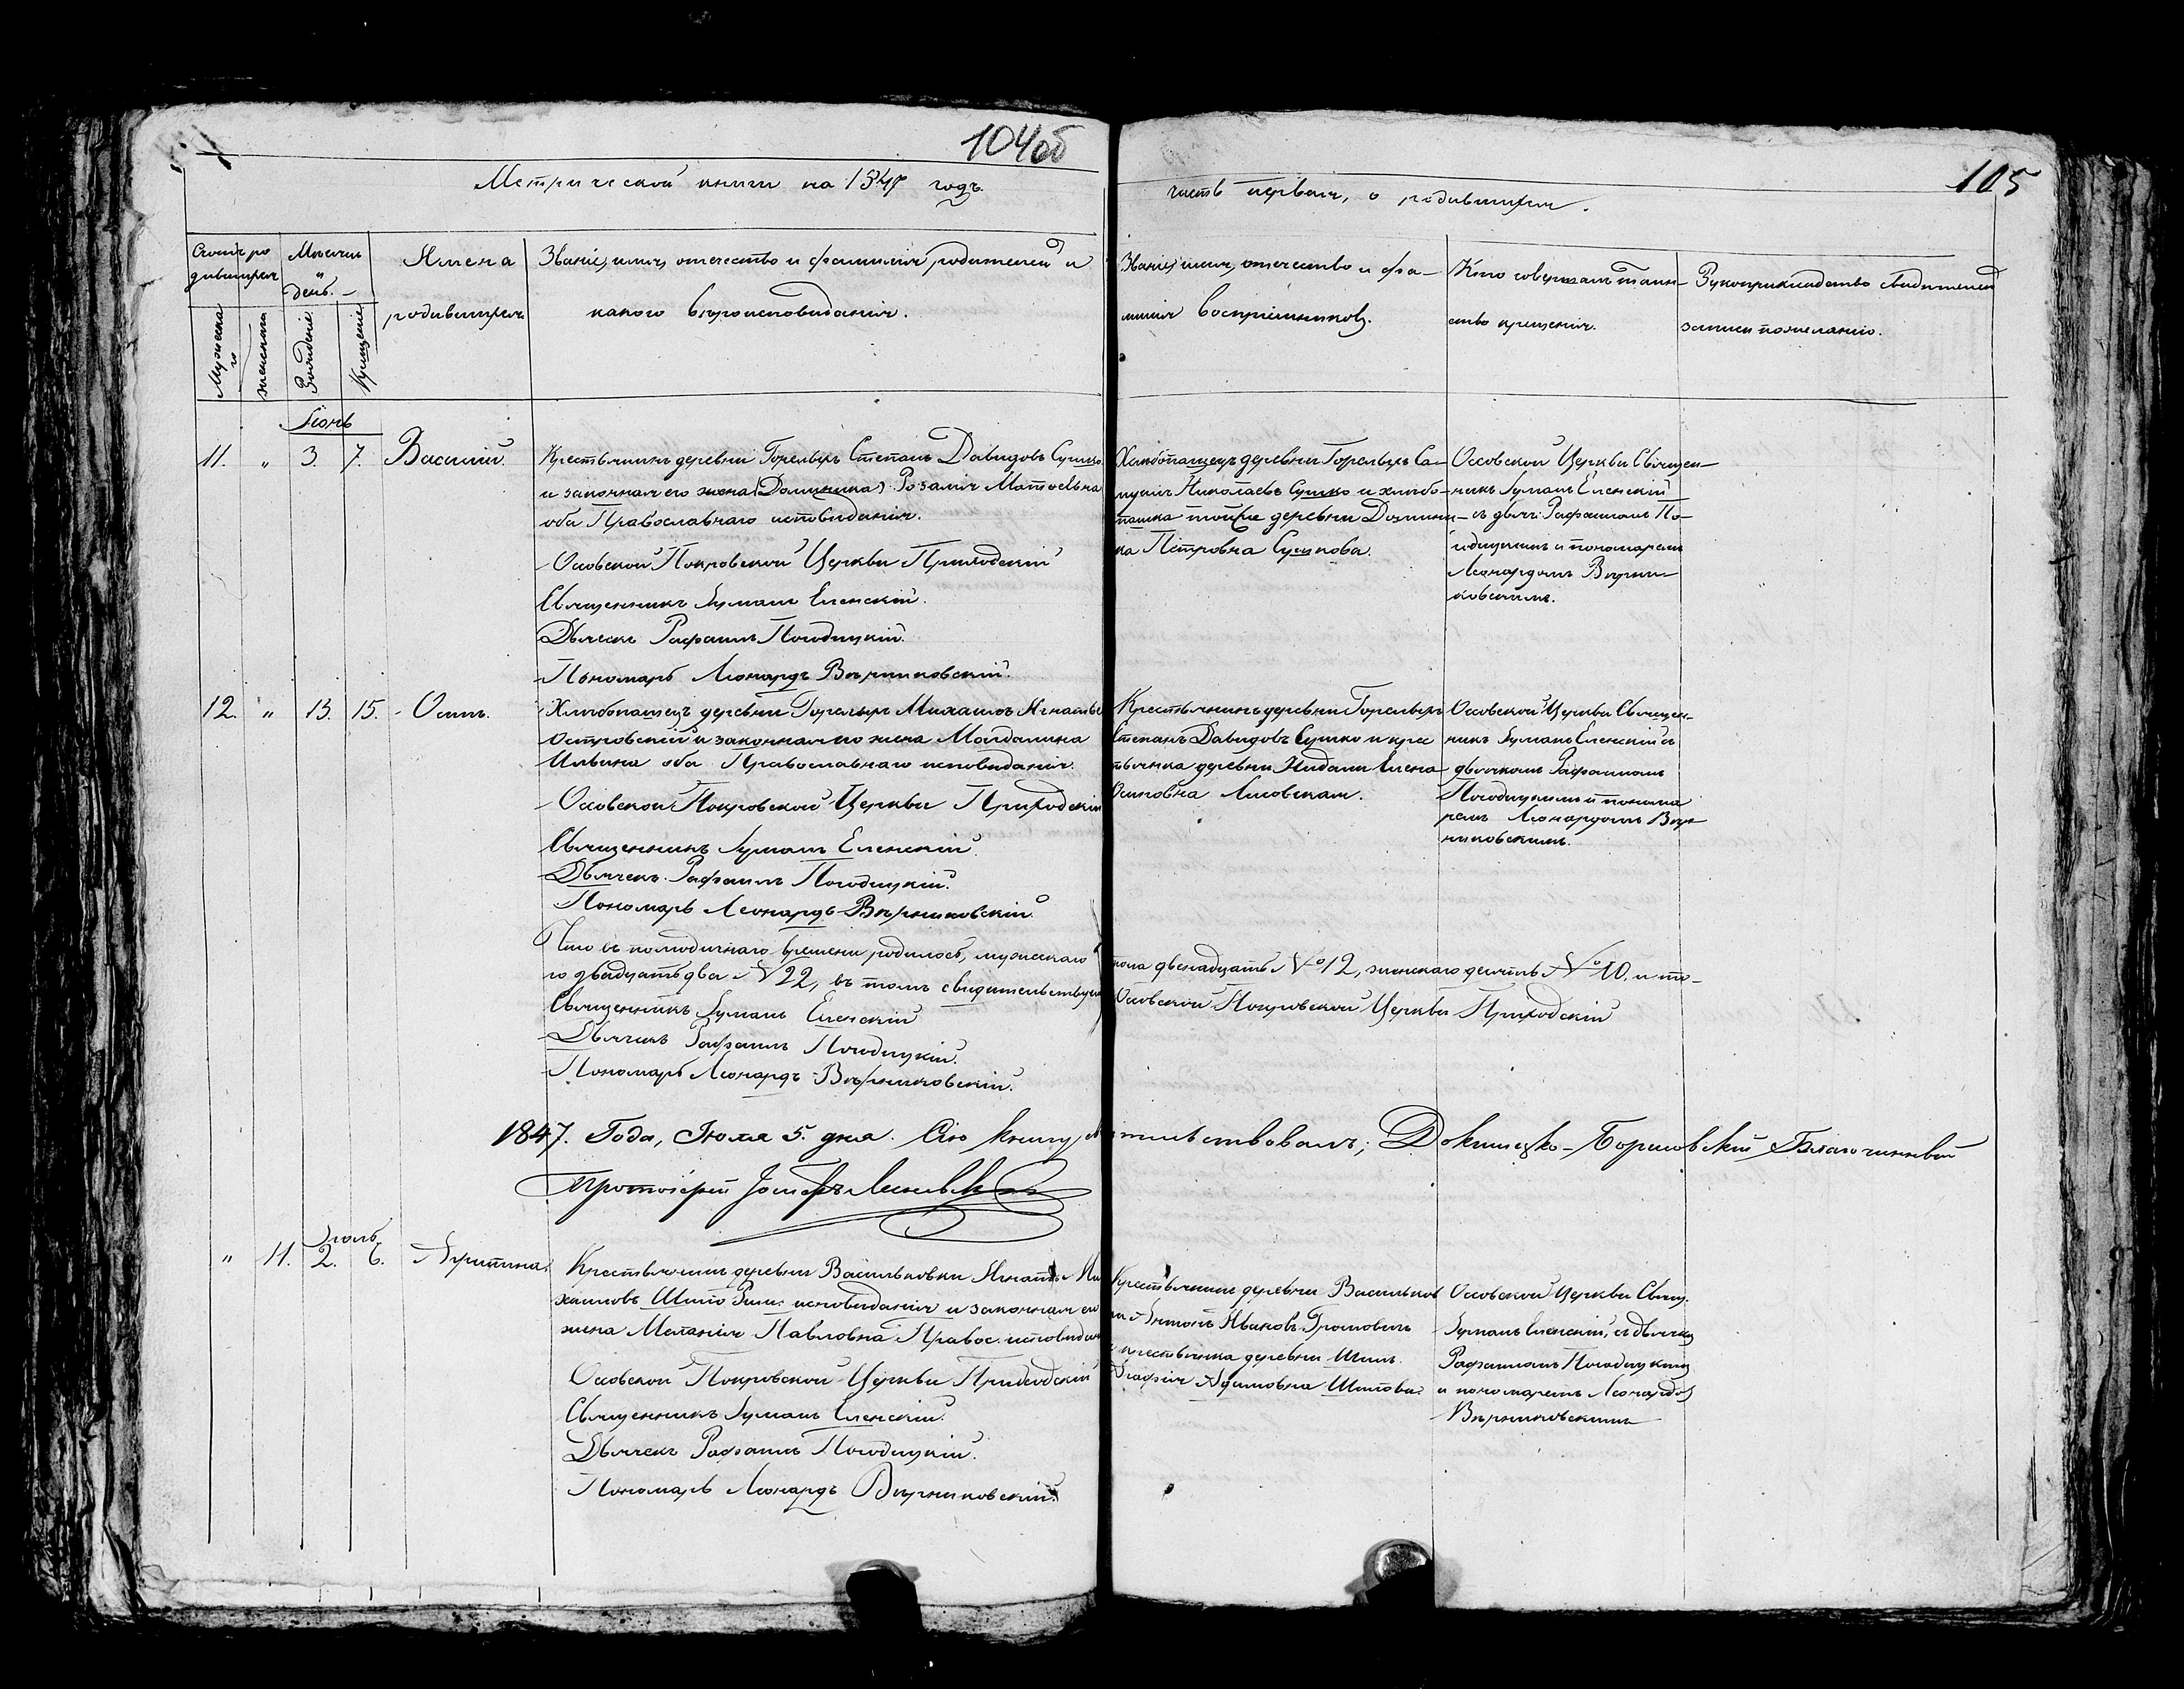 104об
105
Метрической книги на 1847 годъ
часть первая, о родившихся.
Счетъ ро
дившихся
Мужеска
го
женскаго
Мѣсяцъ
и
день.
Рожденіе
Крещеніе
Имена
родившихся
Званіе, имя, отечество и фамилія родителей и
какого вѣроисповѣданія.
Званіе, имя, отечество и фа-
милія воспріемниковъ.
Кто совершалъ таин-
ство крещенія.
Рукоприкладство свидѣтелей
записи по желанію.
Іюнь
11. " 3. 7. Василій.
Крестьянинъ деревни Горелыхъ Степанъ Давидовъ Сушко
и законная его жена (Доминика) Розалія Матѳеевна
оба Православнаго исповѣданія.
Осовской Покровской Церкви Приходскій
Священникъ Еленскій.
Дьячекъ Рафаилъ Погодицкій.
Пономарь Леонардъ Вѣрниковскій.
Хлѣбопашецъ деревни Горелыхъ Са-
Николаевъ Сушко и хлѣбо-
пашка тойже деревни Домини-
ка Петровна Сушкова.
Осовской Церкви Священ-
никъ Еленскій
съ дьяч: Рафаиломъ По-
годицкимъ и пономаремъ
Леонардомъ Вѣрни-
ковскимъ.
12. " 13. 15. Осипъ.
Хлѣбопашецъ деревни Горелыхъ Михаилъ Игнатьевъ
Островскій и законная его жена Магдалина
Ильина оба Православнаго исповѣданія.
Осовской Покровской Церкви Приходскій
Священникъ Еленскій.
Дьячекъ Рафаилъ Погодицкій.
Пономарь Леонардъ Вѣрниковскій
Крестьянинъ деревни Горелыхъ
Степанъ Давидовъ Сушко и крес
тьянка деревни Елена
Осиповна Лисовская.
Осовской Церкви Священ-
никъ Еленскій съ
дьячкомъ Рафаиломъ
Погодицкимъ и понома
ремъ Леонардомъ Вѣр-
никовскимъ.
Что съ полгодичнаго времени родилось, мужескаго
пола двенадцать №12, женскаго десять №10, и то-
го двадцать два №22, въ томъ свидѣтельствуемъ
Осовской Покровской Церкви Приходскій
Священникъ Еленскій
Дьячекъ Рафаилъ Погодицкій.
Пономарь Леонардъ Вѣрниковскій.
1847. Года, Іюля 5. дня. Сію книгу
тельствовалъ; Докшицко-Борисовскій Благочинный
Протоіерей Іосифъ
Іюль
" 11. 2. 6.
Крестьянинъ деревни Васильковки Игнатій Ми
хаиловъ Шило Рим: исповѣданія и законная его
жена Меланія Павловна Правос. исповѣдан
Осовской Покровской Церкви Приходскій
Священникъ Еленскій.
Дьячекъ Рафаилъ Погодицкій.
Пономарь Леонардъ Вѣрниковскій.
Крестьянинъ деревни Васильков
ки Антонъ Ивановъ Громовичъ
и крестьянка деревни Шилъ
Агафія Адамовна Шилова.
Осовской Церкви Свящ.
Еленскій, съ дьячкомъ
Рафаиломъ Погодицкимъ
и пономаремъ Леонардомъ
Вѣрниковскимъ